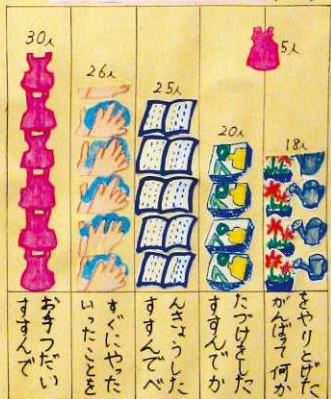 30人
26人
25人
20人
18人
5人
おてつだい
すすんで
すぐにやった
いったことを
んきょうした
すすんでべ
たづけをした
すすんでか
をやりとげた
がんばって何か